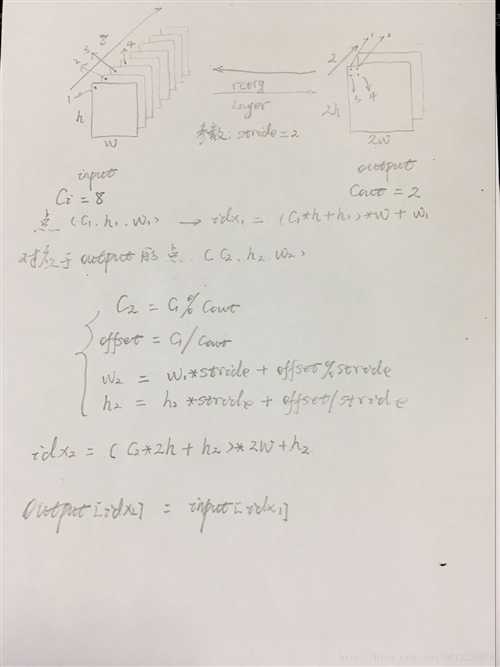 8
3
2
4
1
h
w
reorg
layer
参数: stride=2
2
1
2
3
4
2h
2w
input
output
Ci = 8
Cout = 2
点 (C1, h1, w1) → idx1 = (C1*h+h1)*w + w1
对应于output的点 (C2, h2, w2)
C2 = C1%Cout
offset = C1/Cout
w2 = w1*stride + offset%stride
h2 = h2*stride + offset/stride
idx2 = (C2*2h+h2)*2w+h2
output[idx2] = input[idx1]